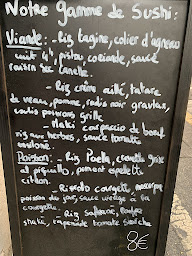 Notre gamme de Sushi:
Viande: - Riz tagine, collier d'agneau
cuit 4h, pistou, coriande, sauce
raisin sec canelle.
- Riz crème aillé, tatare
de veau, pomme, radis noir gravlax,
radis poivrons grillés
Maki carpaccio de boeuf
riz aux herbes, sauce tomatte
Poisson: - Riz Paella, crevette grise
al piquillo, piment espelette
citron.
- Risotto courgette,
poisson du jour, sauce vierge à la
courgette.
- Riz safrané,
tapenade tomate séchée
8€